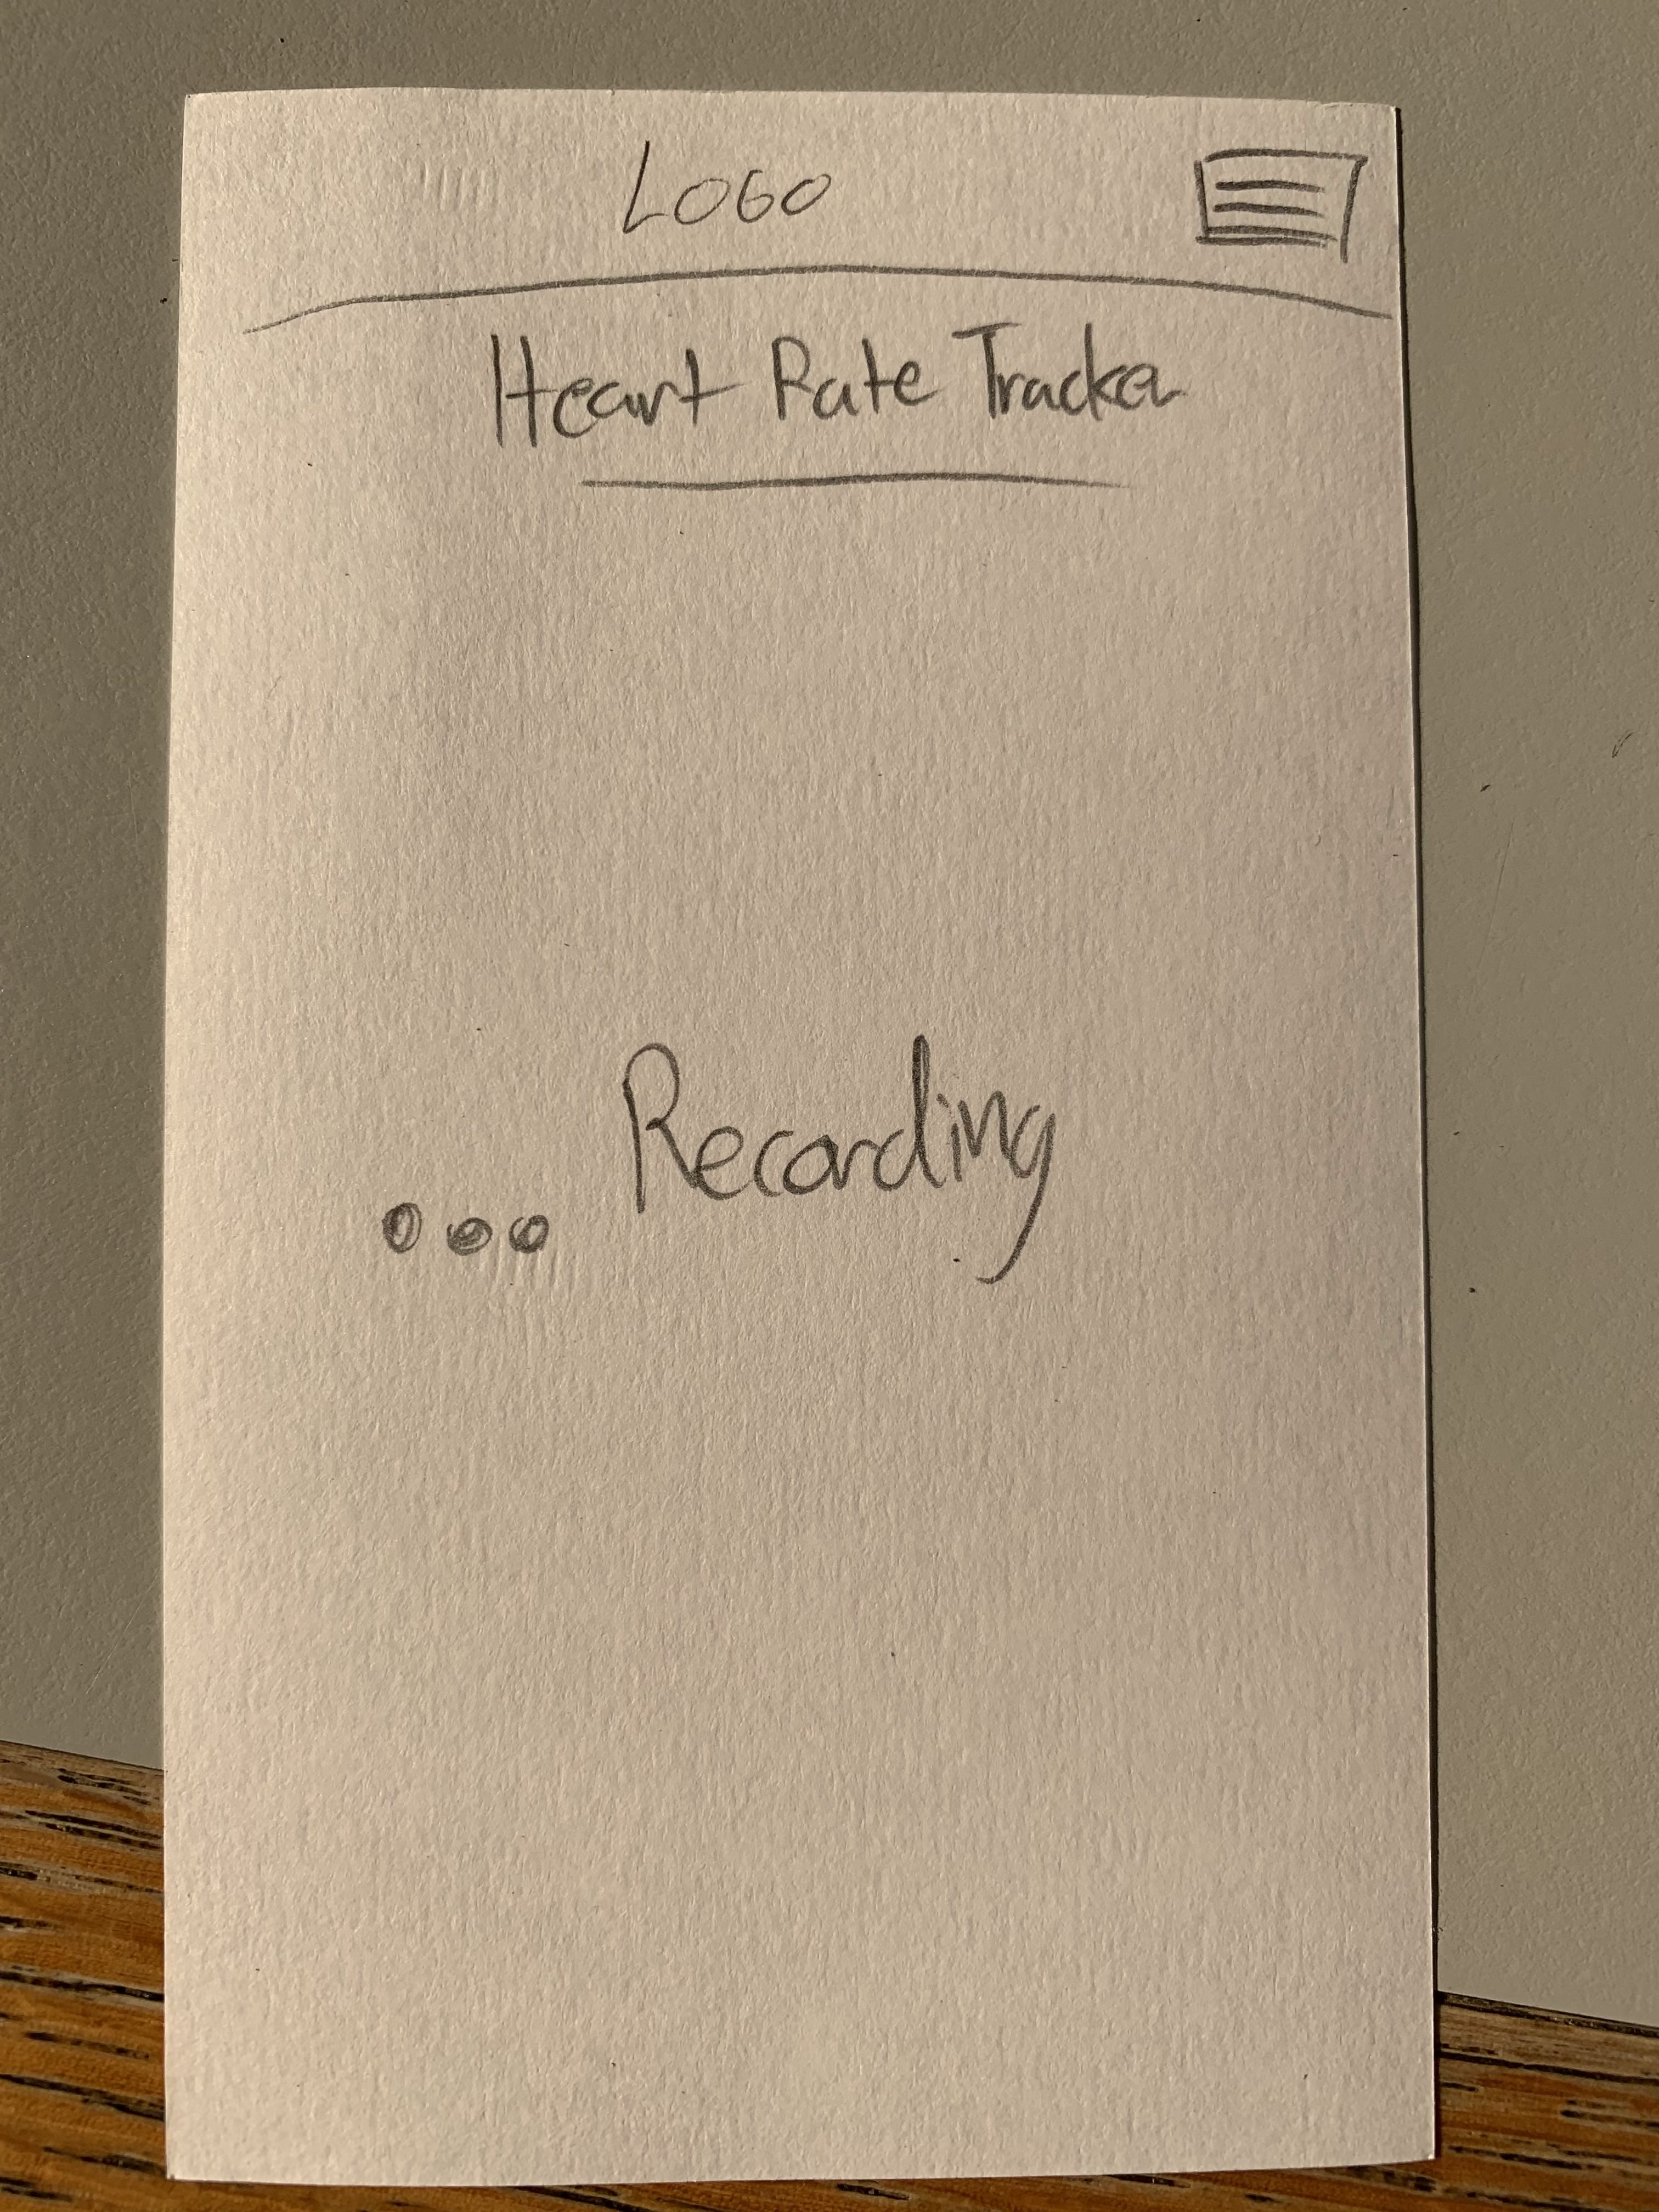 LOGO
Heart Rate Tracker
Recording